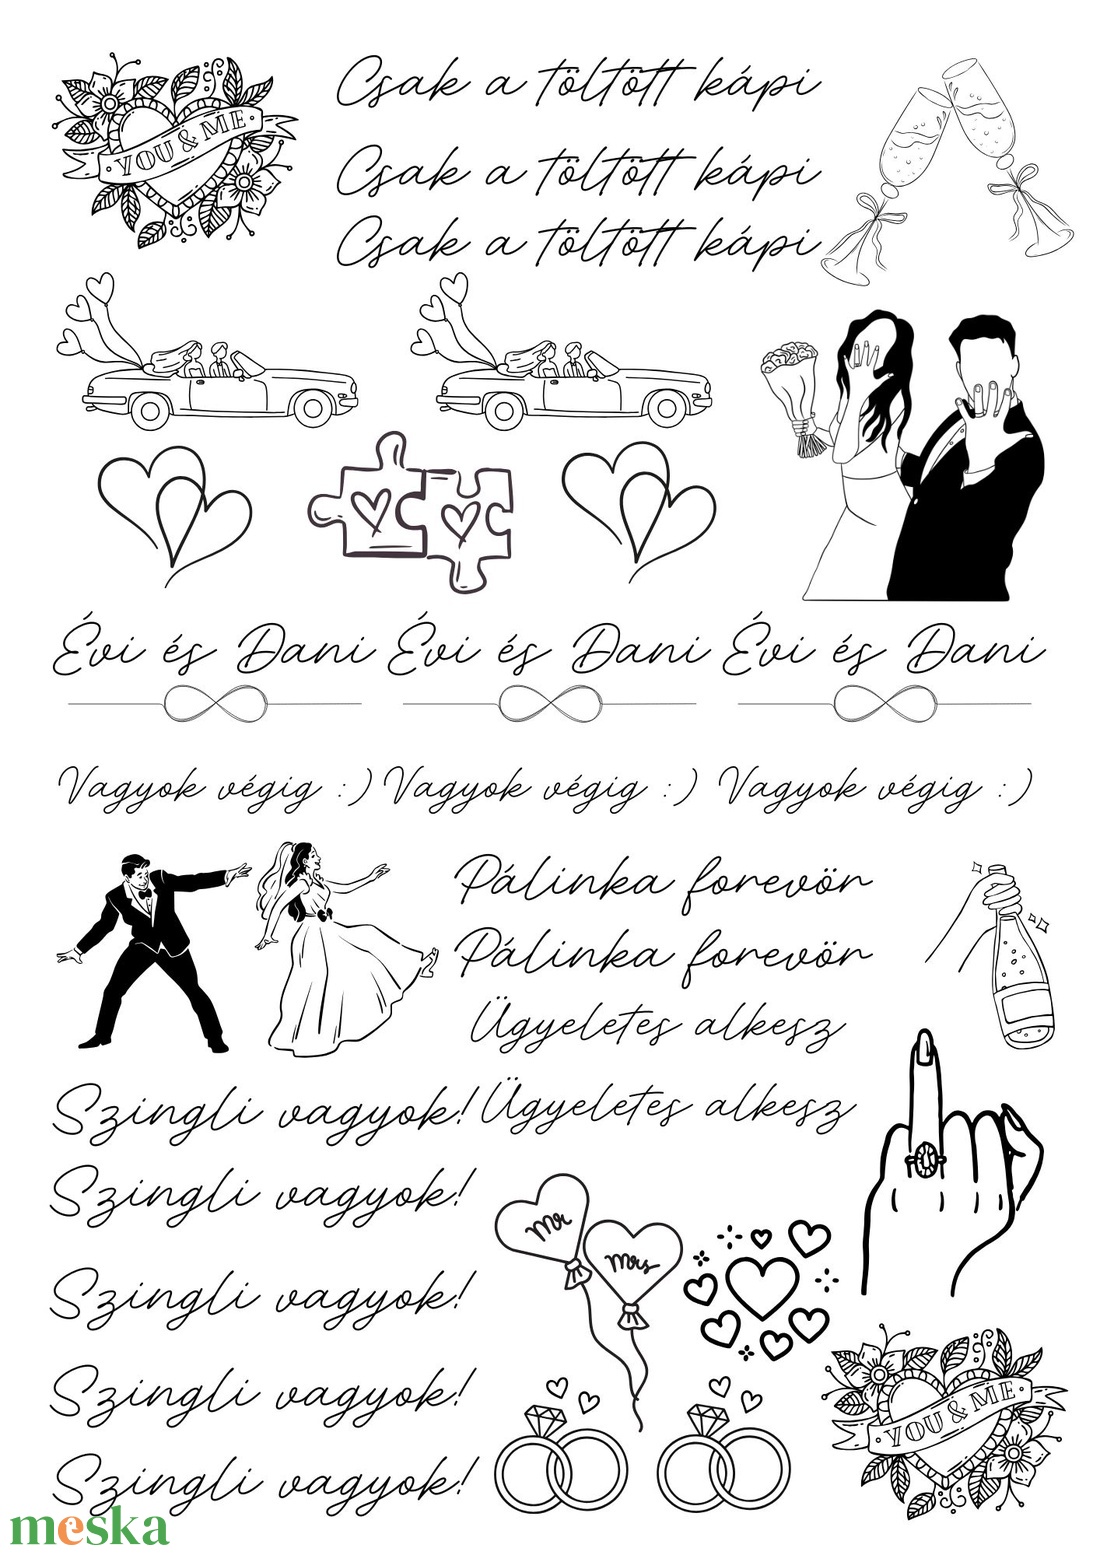 YOU & ME
Csak a töltött kápi
Csak a töltött kápi
Csak a töltött kápi
Évi és Dani Évi és Dani Évi és Dani
Vagyok végig :) Vagyok végig :) Vagyok végig :)
Pálinka forevör
Pálinka forevör
Ügyeletes alkesz
Szingli vagyok! Ügyeletes alkesz
Szingli vagyok!
Mr
Mrs
Szingli vagyok!
Szingli vagyok!
YOU & ME
Szingli vagyok!
meska